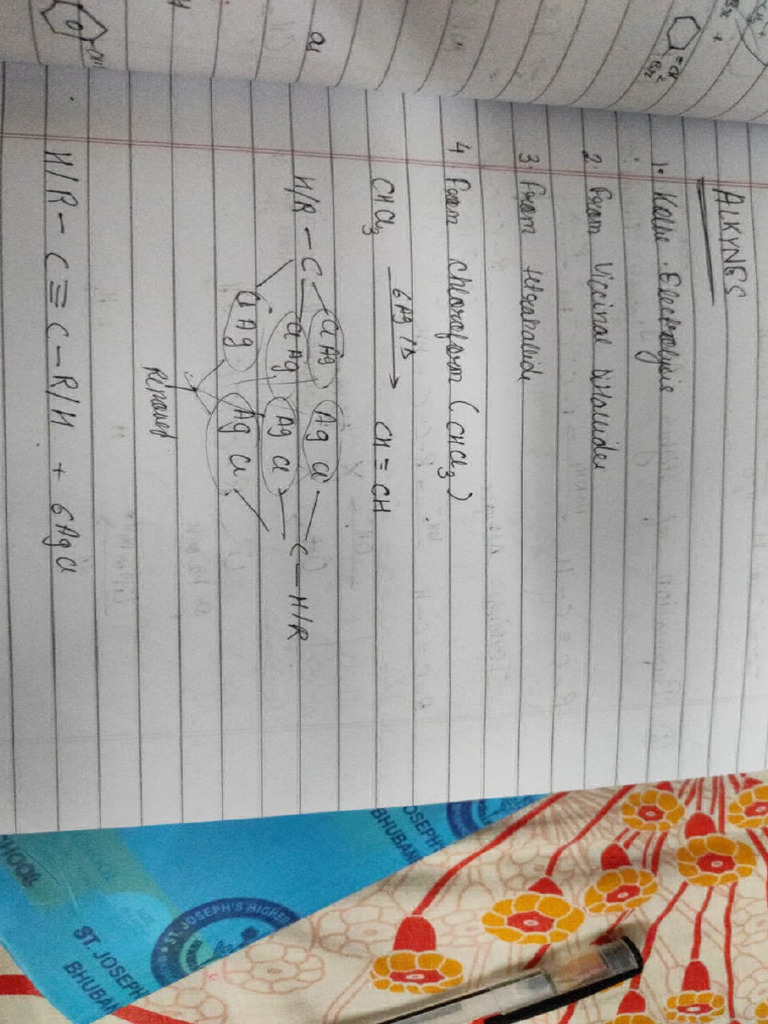 ALKYNES
1. Kolbe Electrolysis
2. From Viccinal Dihalides
3. From tetrahalide
4. From Chloroform (CHCl3)
CHCl3 6Ag/Δ → CH ≡ CH
H/R – C Cl Ag Ag Cl C – H/R
Cl Ag Ag Cl
Cl Ag Ag Cl
Removed
H/R – C ≡ C – R/H + 6AgCl
ST. JOSEPH'S HIGHER
ST. JOSEPH
BHUBAN
OSEPH
BHUBAN